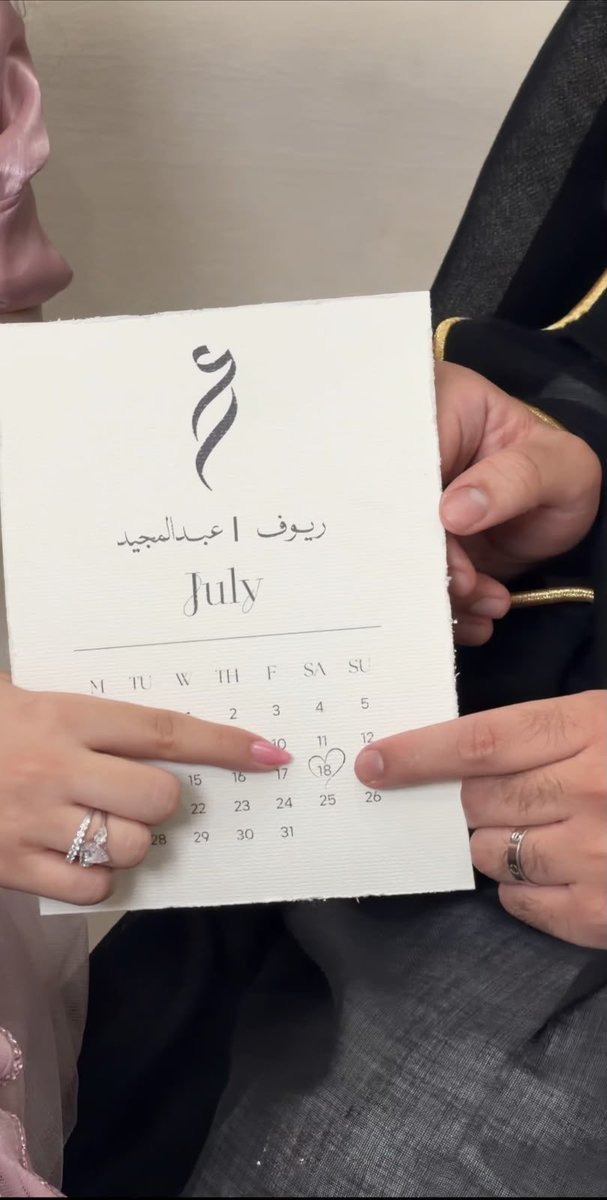 ريوف | عبدالمجيد
July
M TU W TH F SA SU
1 2 3 4 5
10 11 12
15 16 17 18
22 23 24 25 26
28 29 30 31